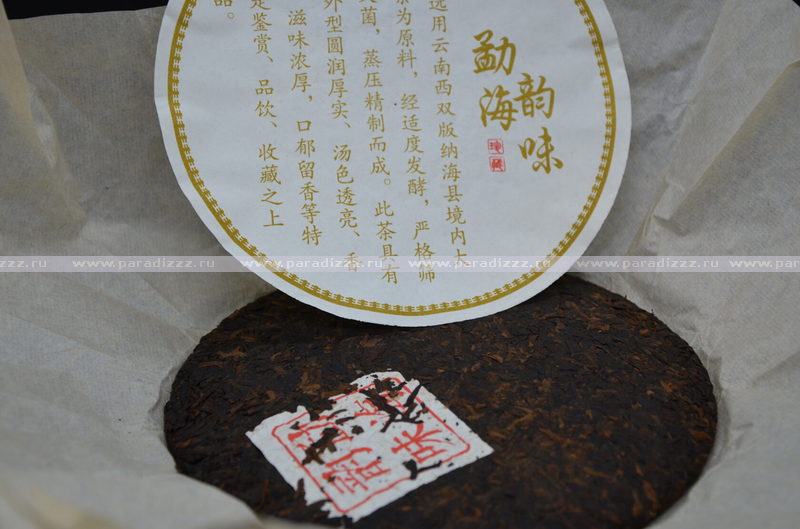 勐海
韵味
选用云南西双版纳海县境内大
为原料，经适度发酵，严格师
菌，蒸压精制而成。此茶具有
外型圆润厚实、汤色透亮、香
滋味浓厚，口郁留香等特
是鉴赏、品饮、收藏之上
品。
www.paradizzz.ru www.paradizzz.ru www.paradizzz.ru www.paradizzz.ru
味